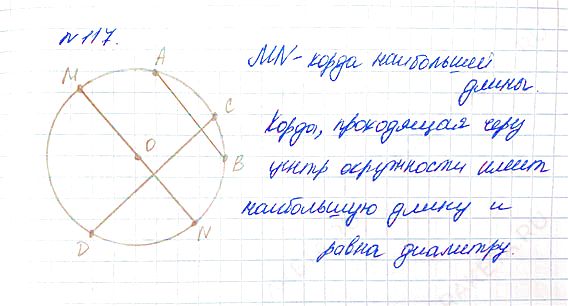 №117.
M
A
C
O
B
D
N
MN - хорда наибольшей
длины.
Хорда, проходящая через
центр окружности имеет
наибольшую длину и
равна диаметру.